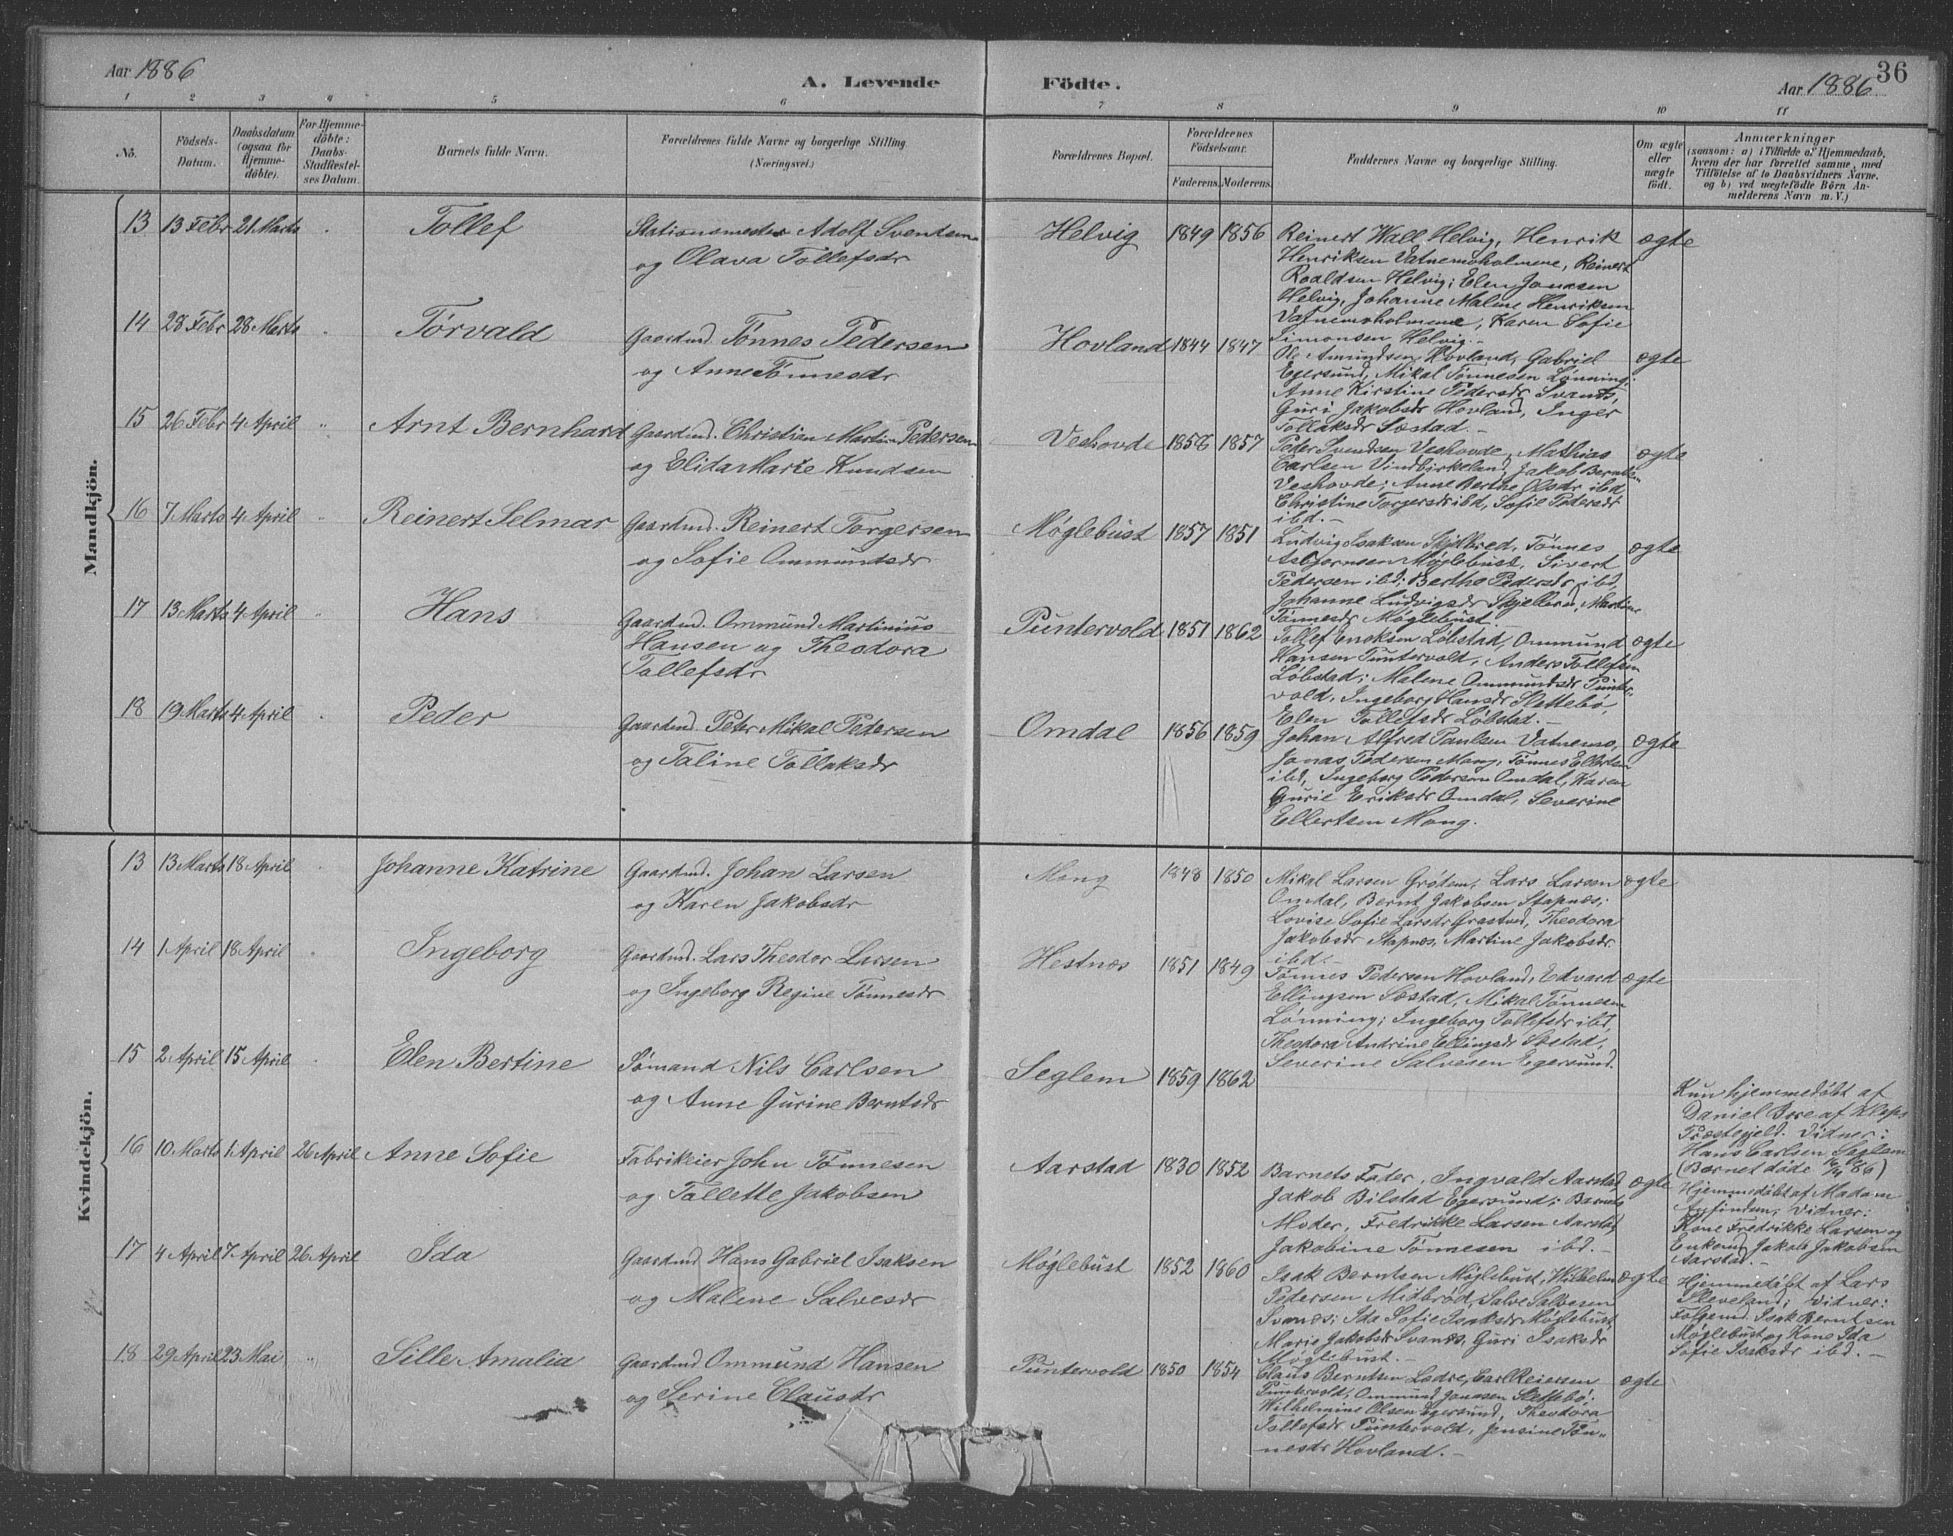 Aar 1886
A. Levende
Födte.
Aar 1886.
36
1 2 3 4 5 6 7 8 9 10 11
No.
Födsels-
Datum.
Daabsdatum
(ogsaa for
Hjemme-
döbte).
For Hjemme-
döbte:
Daabs-
Stadfæstel-
ses Datum.
Barnets fulde Navn.
Forældrenes fulde Navne og borgerlige Stilling.
(Næringsvei.)
Forældrenes Bopæl.
Forældrenes
Födselsaar.
Faderens. Moderens.
Faddernes Navne og borgerlige Stilling.
Om ægte
eller
uægte
födt.
Anmærkninger
(saasom: a) i Tilfælde af Hjemmedaab,
hvem der har forrettet samme, med
Tilföielse af to Daabsvidners Navne,
og b) ved uægtefödte Börn An-
melderens Navn m. V.)
Mandkjön.
13 13 Febr 21 Marts " Tollef
Stationsmester Adolf Svendsen
og Olava Tollefsdr
Helvig 1849 1856
Reinert Wall Helvig, Henrik
Henriksen Vatnemoholmene, Reinert
Roaldsen Helvig; Elen Jonasen
Helvig, Johanne Malene Henriksen
Vatnemoholmene, Karen Sofie
Simonsen Helvig.-
ægte
14 28 Febr 28 Marts " Torvald
Gaardmd. Tønnes Pedersen
og Anne Tønnesdr
Hovland 1844 1847
Ole Amundsen Hovland, Gabriel
Egersund, Mikal Tønnesen Lønning;
Anne Kirstine Pedersdr Svanæs,
Guri Jakobsdr Hovland, Inger
Tollaksdr Sæstad.-
ægte
15 26 Febr 4 April " Arnt Bernhard
Gaardmd. Christian Martin Pedersen
og Elida Marie Knudsen
Veshovde 1858 1857
Peder Svendsen Veshovde, Mathias
Carlsen Vindbirkeland, Jakob Berntsen
Veshovde; Anne Berthe Olsdr ibd,
Christine Torgersdr ibd, Sofie Pedersdr
ibd.-
ægte
16 7 Marts 4 April " Reinert Selmar
Gaardmd. Reinert Torgersen
og Sofie Ommundsdr
Møglebust 1857 1851
Ludvig Isaksen Skjellbred, Tønnes
Asbjørnsen Møglebust, Sivert
Pedersen ibd; Berthe Pedersdr ibd,
Johanne Ludvigsdr Skjellbred, Martine
Tønnesdr Møglebust.-
ægte
17 13 Marts 4 April " Hans
Gaardmd. Ommund Martinius
Hansen og Theodora
Tollefsdr
Puntervold 1851 1862
Tollef Enoksen Løbstad, Ommund
Hansen Puntervold, Anders Tollefsen
Løbstad; Malene Ommundsdr Punter-
vold, Ingeborg Hansdr Slettebø,
Elen Tollefsdr Løbstad.-
ægte
18 19 Marts 4 April " Peder
Gaardmd. Peter Mikal Pedersen
og Taline Tollaksdr
Omdal 1856 1859
Johan Alfred Paulsen Vatnemo,
Jonas Pedersen Mong, Tønnes Ellertsen
ibd, Ingeborg Pedersen Omdal, Karen
Gurie Eriksdr Omdal, Severine
Ellertsen Mong.
ægte
Kvindekjön.
13 13 Marts 18 April " Johanne Katrine
Gaardmd. Johan Larsen
og Karen Jakobsdr
Mong 1848 1850
Mikal Larsen Grøtem, Lars Larsen
Omdal, Bernt Jakobsen Stapnæs;
Lovise Sofie Larsdr Grastved, Theodora
Jakobsdr Stapnæs, Martine Jakobsdr
ibd.-
ægte
14 1 April 18 April " Ingeborg
Gaardmd. Lars Theodor Larsen
og Ingeborg Regine Tønnesdr
Hestnæs 1851 1849
Tønnes Pedersen Hovland, Edvard
Ellingsen Sæstad, Mikal Tønnesen
Lønning; Ingeborg Tollefsdr ibd,
Theodora Andrine Ellingsdr Sæstad,
Severine Salvesen Egersund.
ægte
15 2 April 15 April " Elen Bertine
Sømand Nils Carlsen
og Anne Gurine Berntsdr
Seglem 1859 1862
Kun hjemmedøbt af
Daniel Bore af Klæps
Præstegjeld. Vidner:
Hans Carlsen Seglem
(Barnet døde 86)
16 10 Marts 1 April 26 April Anne Sofie
Fabrikeier John Tønnesen
og Tallette Jakobsen
Aarstad 1830 1852
Barnets Fader, Ingvald Aarstad
Jakob Bilstad Egersund; Barnets
Moder, Fredrikke Larsen Aarstad,
Jakobine Tønnesen ibd.-
ægte
Hjemmedøbt af Madam
Vidner:
Kone Fredrikke Larsen og
Enkemd Jakob Jakobsen
Aarstad.-
17 4 April 7 April 26 April Ida
Gaardmd Hans Gabriel Isaksen
og Malene Salvesdr
Møglebust 1852 1860
Isak Berntsen Møglebust, Wilhelm
Pedersen Midbrød, Salve Salvesen
Svanæs; Ida Sofie Isaksdr Møglebust,
Marie Jakobsdr Svanæs, Guri Isaksdr
Møglebust.-
ægte
Hjemmedøbt af Lars
Kleveland; Vidner:
Følgemd. Isak Berntsen
Møglebust og Kone Ida
Sofie Isaksdr ibd.-
18 29 April 23 Mai " Sille Amalia
Gaardmd Ommund Hansen
og Serine Clausdr
Puntervold 1850 1854
Claus Berntsen Lædre, Carl Reiersen
Puntervold, Ommund Jonassen Slettebø;
Wilhelmine Olsen Egersund, Theodora
Tollefsdr Puntervold, Jensine Tøn-
nesdr Hovland.-
ægte